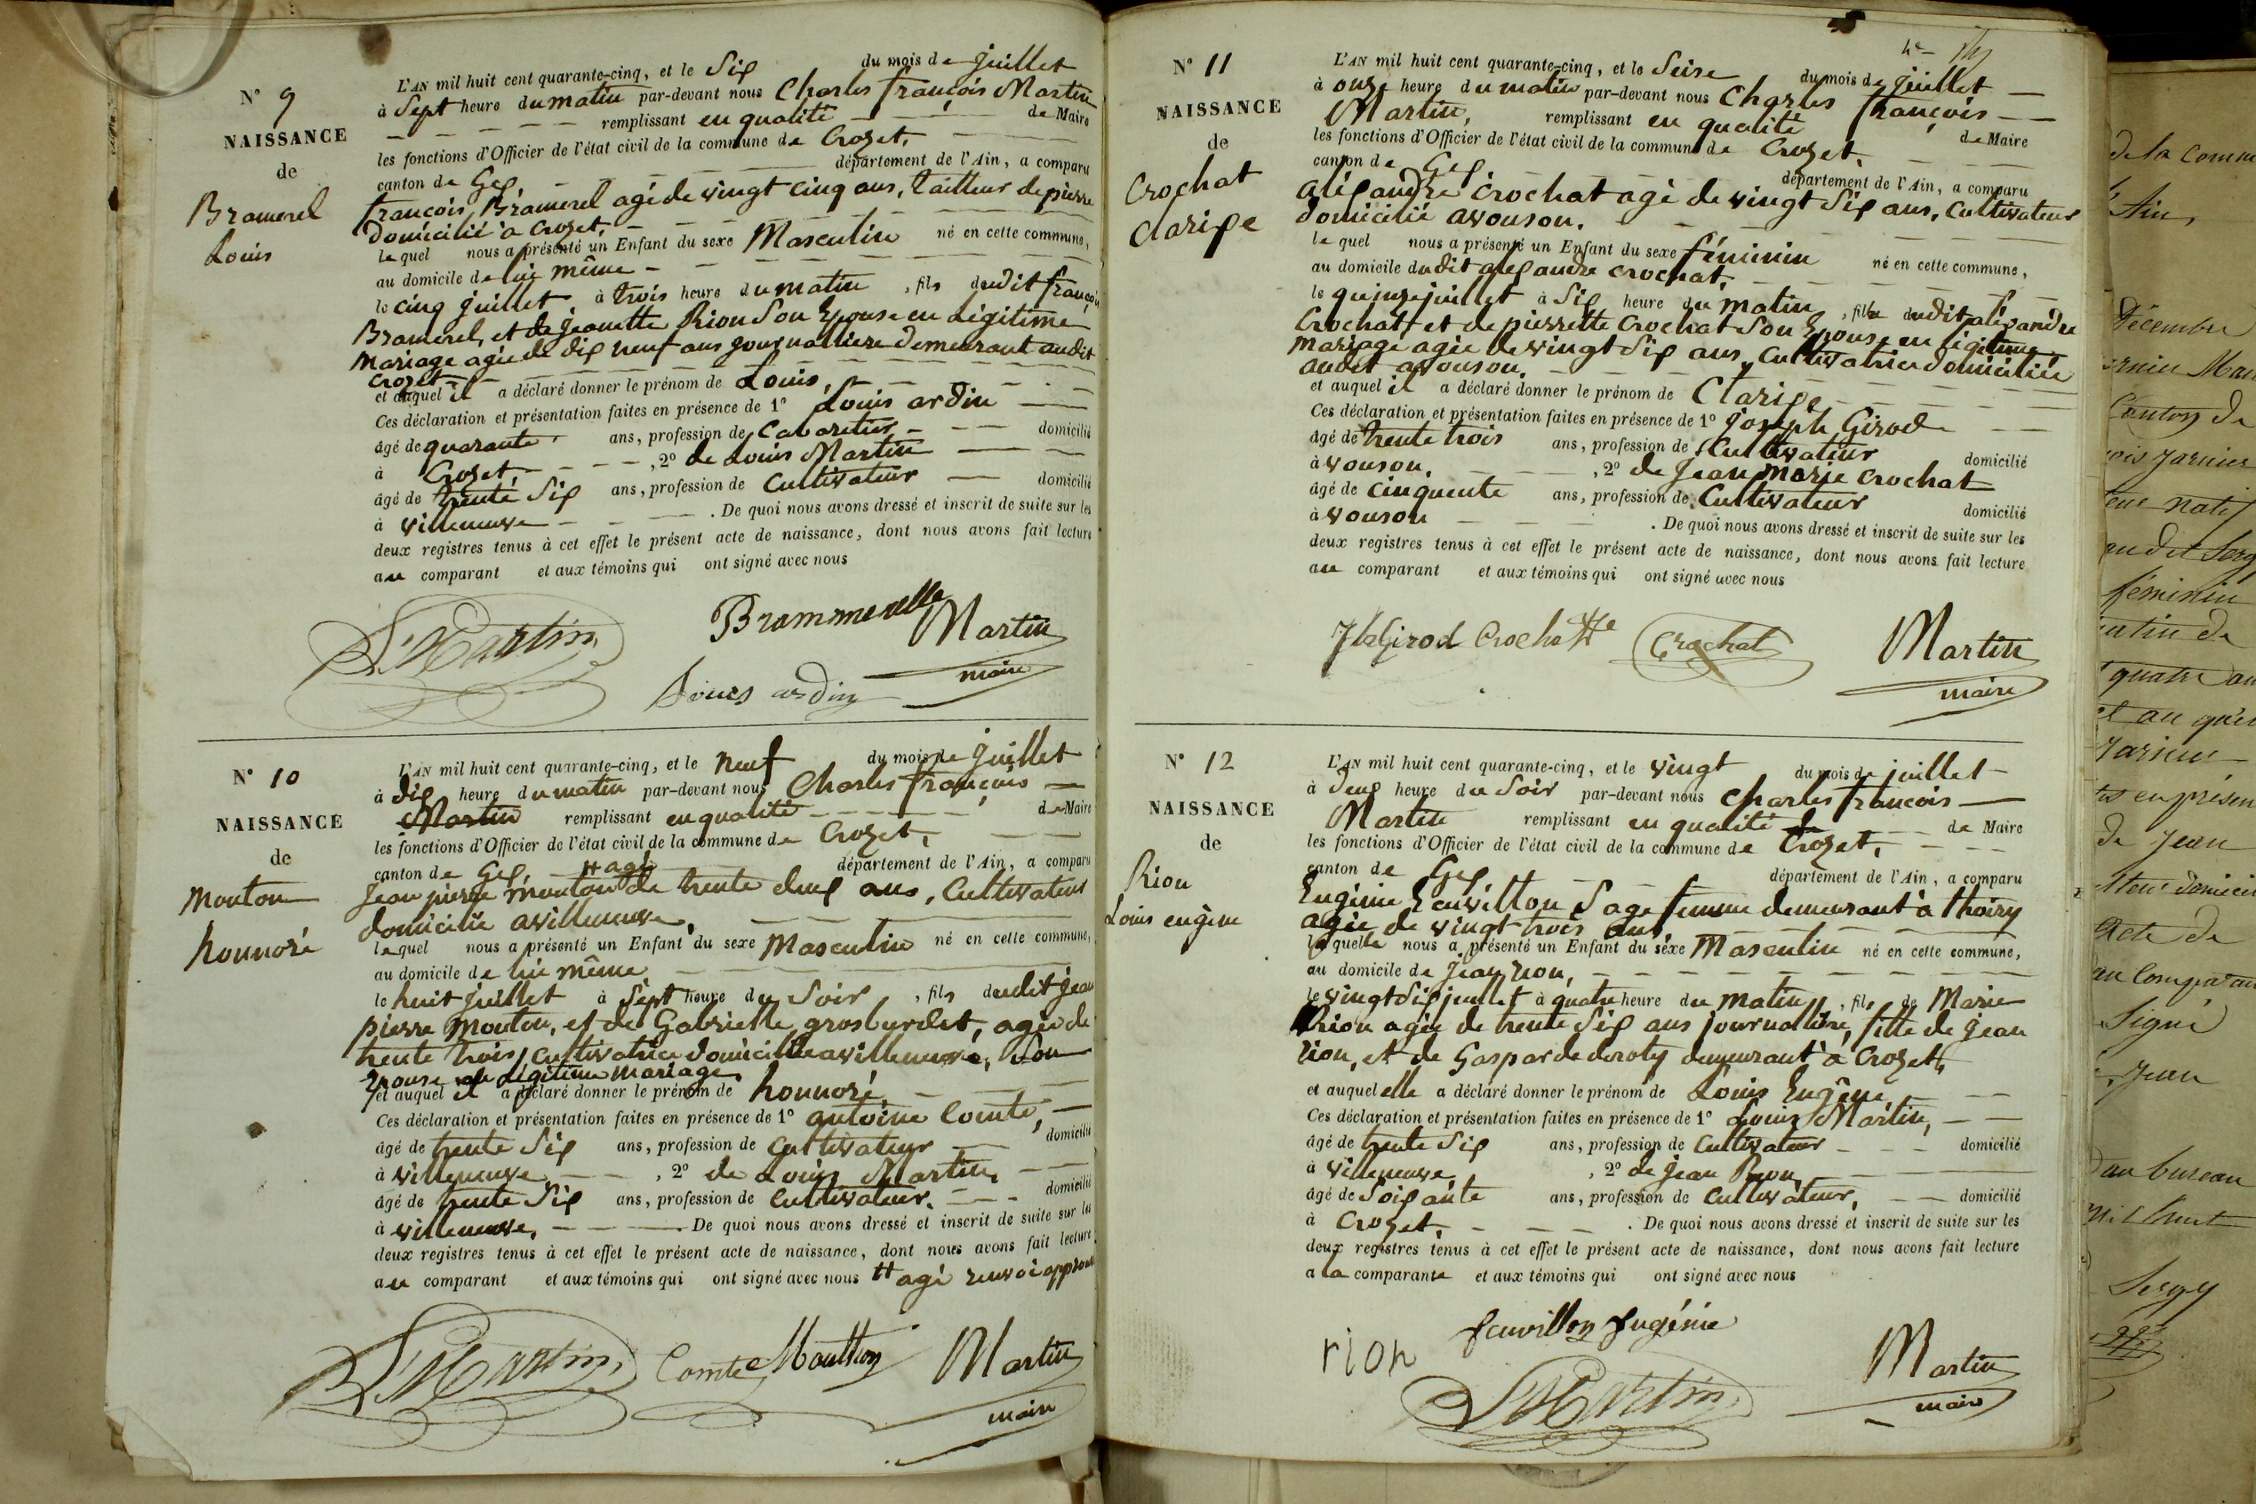 N° 9
NAISSANCE
de
Bramerel
Louis
L'AN mil huit cent quarante-cinq, et le Six du mois de juillet
à Sept heure du matin par-devant nous Charles françois Martin
remplissant en qualité de Maire
les fonctions d'Officier de l'état civil de la commune de Crozet,
canton de Gex, département de l'Ain, a comparu
francois Bramerel agé de vingt cinq ans, tailleur de pierre
domicilié à Crozet,
lequel nous a présenté un Enfant du sexe Masculin né en cette commune,
au domicile de lui même
le cinq juillet, à trois heure du matin, fils dudit françois
Bramerel, et de jeanette Rion Son Epouse en Légitime
Mariage agée de dix neuf ans journalliere demeurant audit
Crozet
et auquel il a déclaré donner le prénom de Louis,
Ces déclaration et présentation faites en présence de 1° Louis ardin
âgé de quarante ans, profession de Cabaretier domicilié
à Crozet, , 2° de Louis Martin
âgé de trente Six ans, profession de Cultivateur domicilié
à villeneuve . De quoi nous avons dressé et inscrit de suite sur les
deux registres tenus à cet effet le présent acte de naissance, dont nous avons fait lecture
au comparant et aux témoins qui ont signé avec nous
Brammerelle
L. Martin Martin
Louis ardin maire
N° 10
NAISSANCE
de
Mouton
honnoré
L'AN mil huit cent quarante-cinq, et le neuf du mois de juillet
à dix heure du matin par-devant nous Charles françois
Martin remplissant en qualité de Maire
les fonctions d'Officier de l'état civil de la commune de Crozet,
canton de Gex, H agé département de l'Ain, a comparu
Jean pierre mouton de trente deux ans, Cultivateur
domicilié a villeneuve,
lequel nous a présenté un Enfant du sexe Masculin né en cette commune,
au domicile de lui même
le huit juillet à Sept heure du Soir, fils dudit jean
pierre Mouton, et de Gabrielle grosburdet, agée de
trente trois, Cultivatrice domiciliée a villeneuve, Son
Epouse en Légitime Mariage
et auquel il a déclaré donner le prénom de honnoré,
Ces déclaration et présentation faites en présence de 1° antoine Comte,
âgé de trente Six ans, profession de Cultivateur domicilié
à villeneuve , 2° de Louis Martin,
âgé de trente Six ans, profession de Cultivateur. domicilié
à villeneuve, . De quoi nous avons dressé et inscrit de suite sur les
deux registres tenus à cet effet le présent acte de naissance, dont nous avons fait lecture
au comparant et aux témoins qui ont signé avec nous H agé renvoi approuvé
L. Martin, Comte Moutton Martin
maire
N° 11
NAISSANCE
de
Crochat
Clarixe
L'AN mil huit cent quarante-cinq, et le Seise du mois de juillet
à onze heure du matin par-devant nous Charles françois
Martin, remplissant en qualité de Maire
les fonctions d'Officier de l'état civil de la commune de Crozet,
canton de Gex, département de l'Ain, a comparu
alexandre Crochat agé de vingt Six ans, Cultivateur
domicilié avouson.
lequel nous a présenté un Enfant du sexe féminin né en cette commune,
au domicile dudit alexandre Crochat,
le quinze juillet à Six heure du matin, fille dudit alexandre
Crochat, et de pierrette Crochat Son Epouse en légitime
mariage agée de vingt Six ans, Cultivatrice domiciliée
audit avouson.
et auquel il a déclaré donner le prénom de Clarixe
Ces déclaration et présentation faites en présence de 1° joseph Girod
âgé de trente trois ans, profession de Cultivateur domicilié
à vouson, , 2° de jean marie Crochat
âgé de cinquente ans, profession de Cultivateur domicilié
à vouson . De quoi nous avons dressé et inscrit de suite sur les
deux registres tenus à cet effet le présent acte de naissance, dont nous avons fait lecture
au comparant et aux témoins qui ont signé avec nous
Girod Crochat Crochat Martin
maire
N° 12
NAISSANCE
de
Rion
Louis eugène
L'AN mil huit cent quarante-cinq, et le vingt du mois de juillet
à deux heure du Soir par-devant nous Charles francois
Martin remplissant en qualité de Maire
les fonctions d'Officier de l'état civil de la commune de Crozet,
canton de Gex département de l'Ain, a comparu
Eugénie Feuvillon Sage femme demeurant à thoiry
agée de vingt trois ans,
laquelle nous a présenté un Enfant du sexe Masculin né en cette commune,
au domicile de jean rion,
le vingt Six juillet à quatre heure du matin, fils de Marie
Rion agée de trente Six ans journalière, fille de jean
rion, et de Gasparde deroty demeurant à Crozet,
et auquel elle a déclaré donner le prénom de Louis Eugêne
Ces déclaration et présentation faites en présence de 1° Louis Martin,
âgé de trente Six ans, profession de Cultivateur domicilié
à villeneuve, , 2° de jean Rion,
âgé de Soixante ans, profession de Cultivateur, domicilié
à Crozet, . De quoi nous avons dressé et inscrit de suite sur les
deux registres tenus à cet effet le présent acte de naissance, dont nous avons fait lecture
a la comparante et aux témoins qui ont signé avec nous
feuvillon Eugénie
rion Martin
L. Martin maire
de la comm
Ain,
Décembre
Canton de
natif
féminin
quatre an
Jean
bureau
Sergy